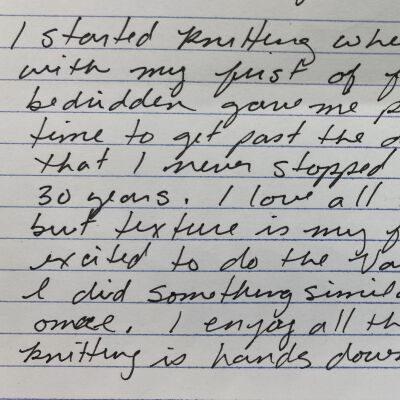 I started knitting whe
with my first of f
bedridden gave me p
time to get past the
that I never stopped
30 years. I love all
but texture is my f
excited to do the Va
I did something simila
I enjoy all th
knitting is hands down